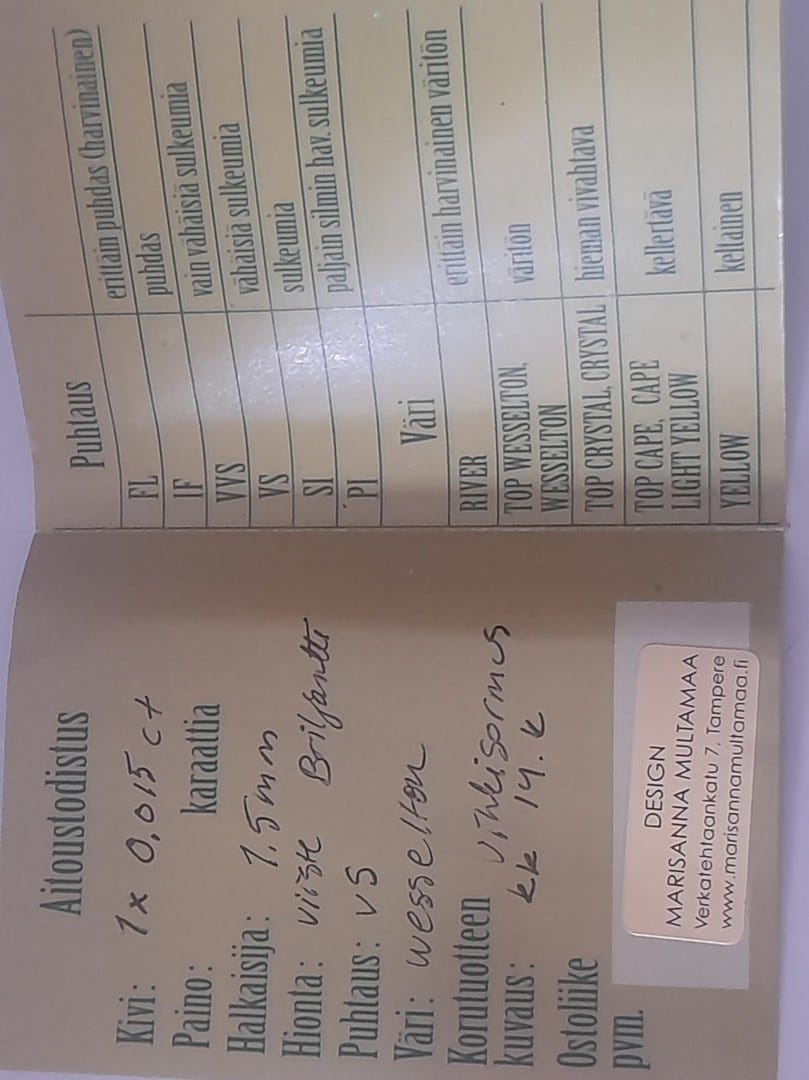 Aitoustodistus
Kivi: 1x 0,015 ct
Paino: karaattia
Halkaisija: 1.5mm
Hionta: viiste Briljantti
Puhtaus: VS
Väri: wesselton
Korutuotteen
kuvaus: vihkisormus
kk 14.k
Ostoliike
pvm.
DESIGN
MARISANNA MULTAMAA
Verkatehtaankatu 7, Tampere
www.marisannamultamaa.fi
Puhtaus
FL erittäin puhdas (harvinainen)
IF puhdas
VVS vain vähäisiä sulkeumia
VS vähäisiä sulkeumia
SI sulkeumia
PI paljain silmin hav. sulkeumia
Väri
RIVER erittäin harvinainen väritön
TOP WESSELTON,
WESSELTON väritön
TOP CRYSTAL, CRYSTAL hieman vivahtava
TOP CAPE, CAPE
LIGHT YELLOW kellertävä
YELLOW keltainen